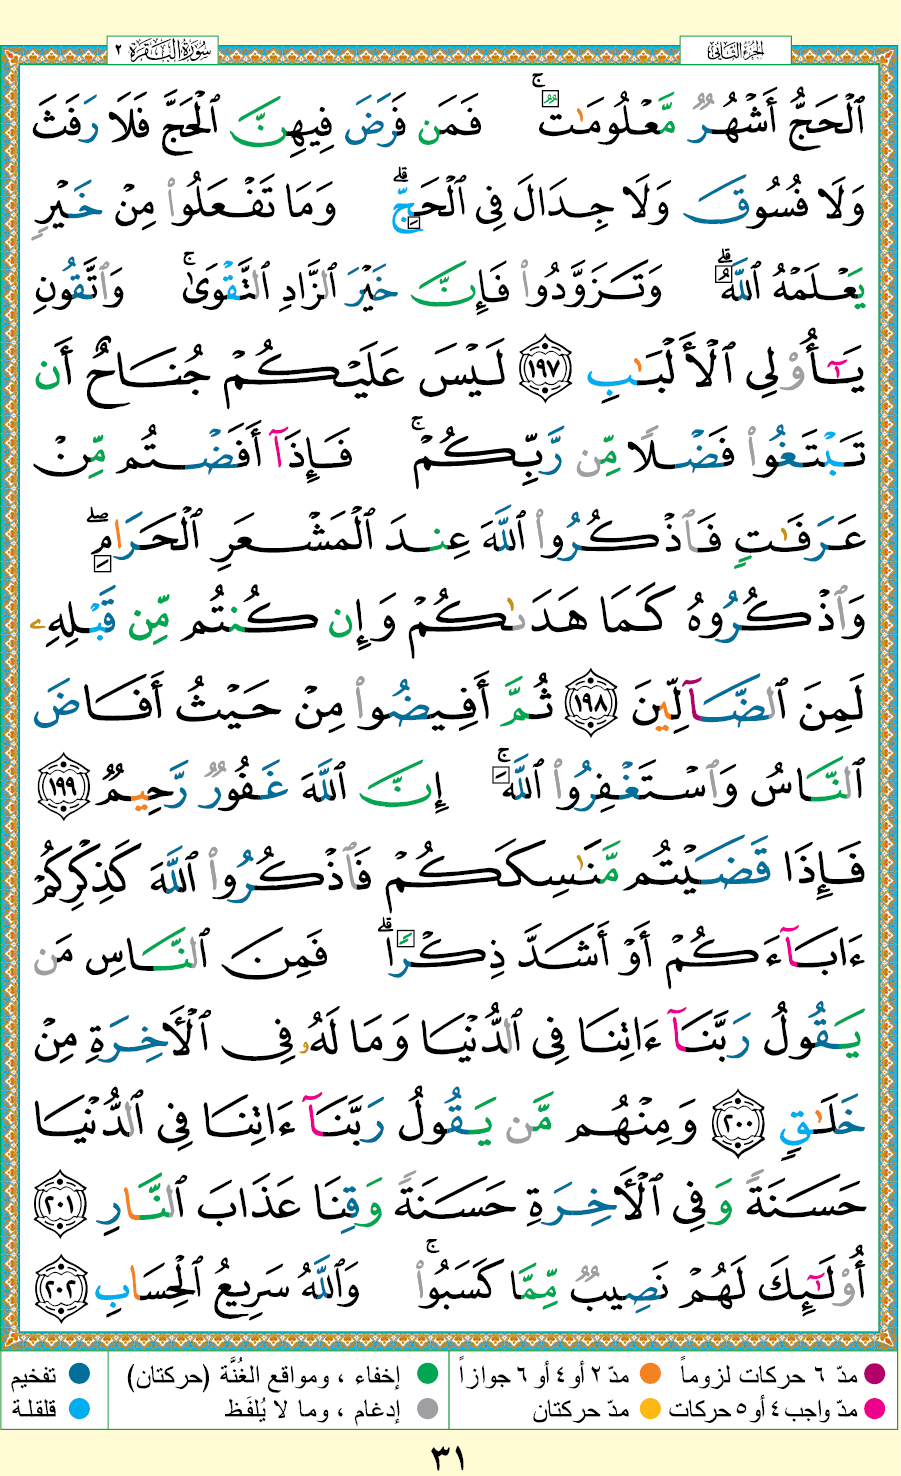 الجزء الثاني
سورة البقرة ٢
ٱلْحَجُّ أَشْهُرٌ مَّعْلُومَٰتٌ ۚ فَمَن فَرَضَ فِيهِنَّ ٱلْحَجَّ فَلَا رَفَثَ
وَلَا فُسُوقَ وَلَا جِدَالَ فِى ٱلْحَجِّ ۗ وَمَا تَفْعَلُوا۟ مِنْ خَيْرٍ
يَعْلَمْهُ ٱللَّهُ ۗ وَتَزَوَّدُوا۟ فَإِنَّ خَيْرَ ٱلزَّادِ ٱلتَّقْوَىٰ ۚ وَٱتَّقُونِ
يَٰٓأُو۟لِى ٱلْأَلْبَٰبِ ١٩٧ لَيْسَ عَلَيْكُمْ جُنَاحٌ أَن
تَبْتَغُوا۟ فَضْلًا مِّن رَّبِّكُمْ ۚ فَإِذَآ أَفَضْتُم مِّنْ
عَرَفَٰتٍ فَٱذْكُرُوا۟ ٱللَّهَ عِندَ ٱلْمَشْعَرِ ٱلْحَرَامِ ۖ
وَٱذْكُرُوهُ كَمَا هَدَىٰكُمْ وَإِن كُنتُم مِّن قَبْلِهِۦ
لَمِنَ ٱلضَّآلِّينَ ١٩٨ ثُمَّ أَفِيضُوا۟ مِنْ حَيْثُ أَفَاضَ
ٱلنَّاسُ وَٱسْتَغْفِرُوا۟ ٱللَّهَ ۚ إِنَّ ٱللَّهَ غَفُورٌ رَّحِيمٌ ١٩٩
فَإِذَا قَضَيْتُم مَّنَٰسِكَكُمْ فَٱذْكُرُوا۟ ٱللَّهَ كَذِكْرِكُمْ
ءَابَآءَكُمْ أَوْ أَشَدَّ ذِكْرًا ۗ فَمِنَ ٱلنَّاسِ مَن
يَقُولُ رَبَّنَآ ءَاتِنَا فِى ٱلدُّنْيَا وَمَا لَهُۥ فِى ٱلْأَخِرَةِ مِنْ
خَلَٰقٍ ٢٠٠ وَمِنْهُم مَّن يَقُولُ رَبَّنَآ ءَاتِنَا فِى ٱلدُّنْيَا
حَسَنَةً وَفِى ٱلْأَخِرَةِ حَسَنَةً وَقِنَا عَذَابَ ٱلنَّارِ ٢٠١
أُو۟لَٰٓئِكَ لَهُمْ نَصِيبٌ مِّمَّا كَسَبُوا۟ ۚ وَٱللَّهُ سَرِيعُ ٱلْحِسَابِ ٢٠٢
مدّ ٦ حركات لزوماً مدّ ٢ أو ٤ أو ٦ جوازاً إخفاء ، ومواقع الغُنَّة (حركتان) تفخيم
مدّ واجب ٤ أو ٥ حركات مدّ حركتان إدغام ، وما لا يُلفَظ قلقلة
٣١